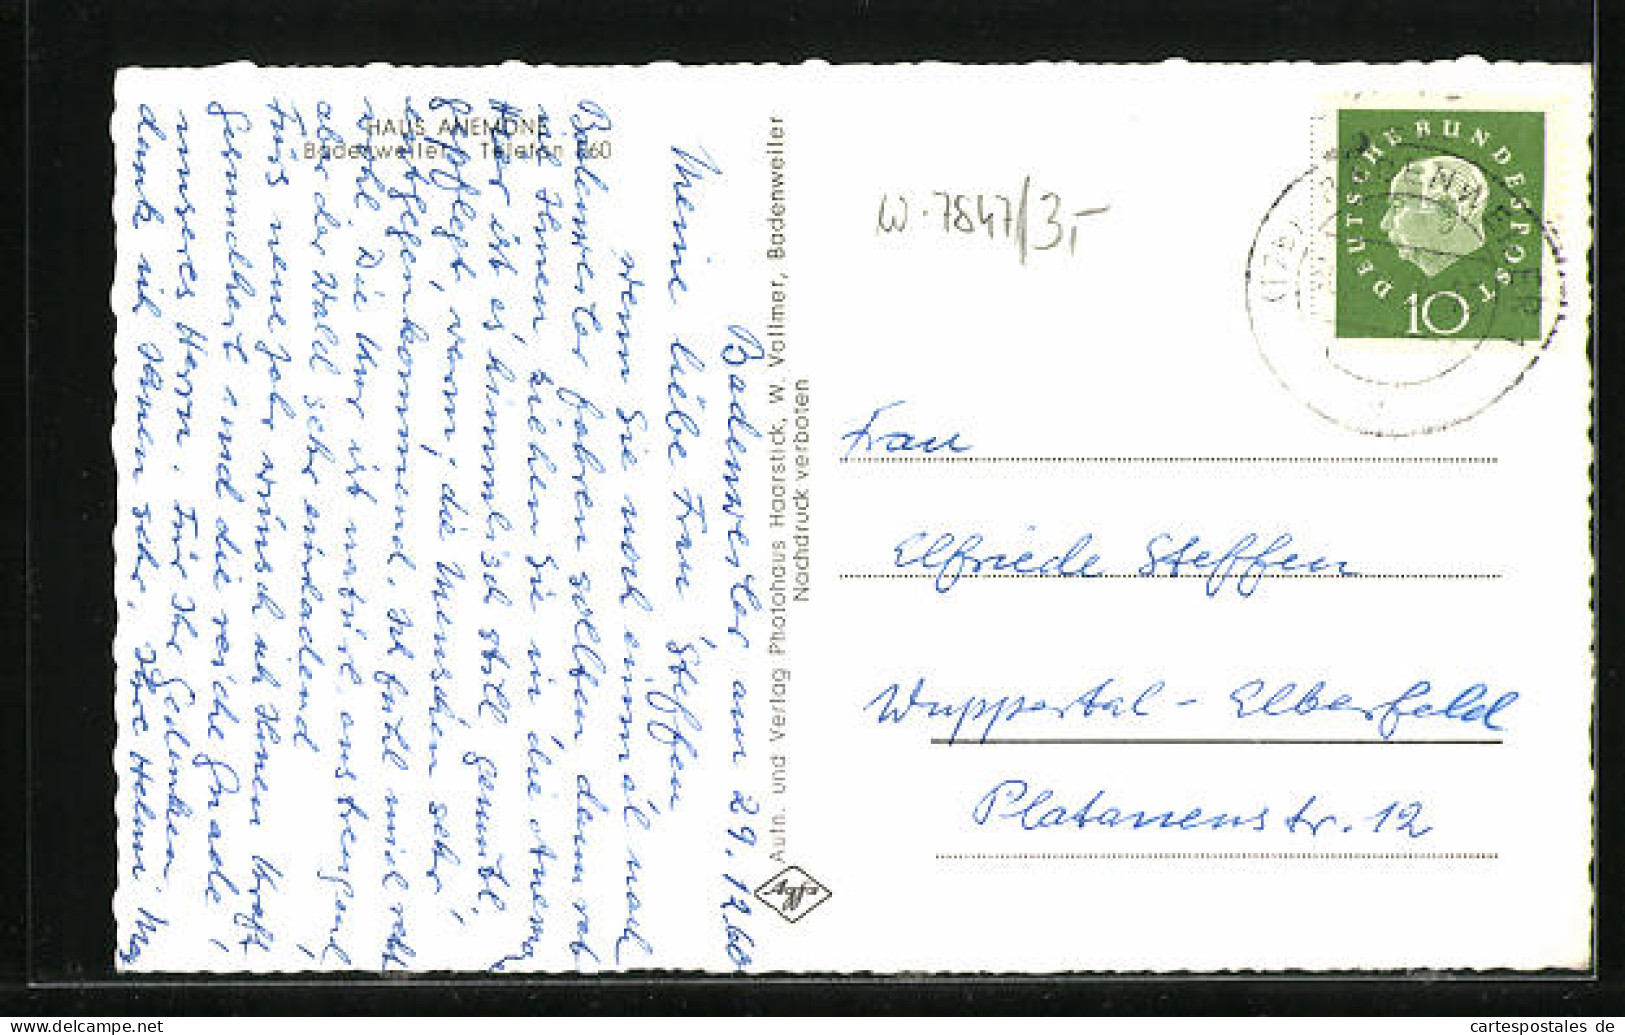 HAUS ANEMONE
Badenweiler · Telefon 360
Badenweiler am 29.12.60
Meine liebe Frau Steffen
wenn Sie noch einmal nach
Badenweiler fahren sollten dann rat
ich Ihnen ziehen Sie in die Anemone
Hier ist es himmlisch still, gemütl,
gepflegt, warm, die Menschen sehr
entgegenkommend. Ich fühl mich recht
wohl. Die Kur ist natürl. anstrengend
aber der Wald sehr einladend!
Fürs neue Jahr wünsch ich Ihnen Kraft
Gesundheit und die reiche Gnade
unseres Herrn. Für Ihr Gedenken
dank ich Ihnen sehr, Ihre Helmi
Autn. und Verlag Photohaus Haarstick, W. Vollmer, Badenweiler
Nachdruck verboten
Agfa
W.7847/3,-
DEUTSCHE BUNDESPOST
10
Frau
Elfriede Steffen
Wuppertal - Elberfeld
Platanenstr. 12
www.cartespostales.de
cartespostales de